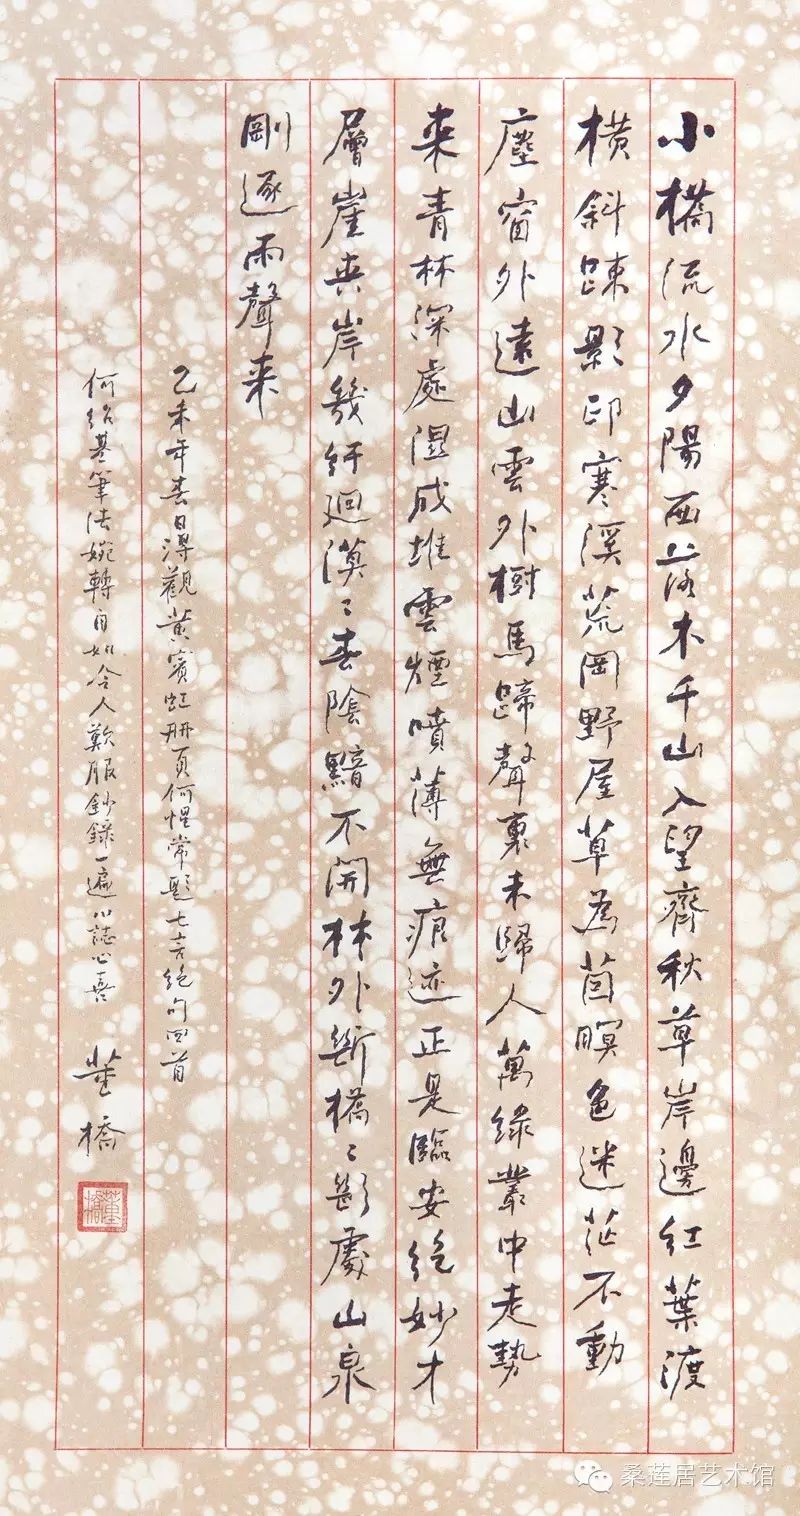 小橋流水夕陽西落木千山入望齊秋草岸邊紅葉渡
橫斜疎影印寒溪荒岡野屋草為茵暝色迷茫不動
塵窗外遠山雲外樹馬蹄聲裏未歸人萬綠叢中走勢
來青林深處濕成堆雲煙噴薄無痕迹正是臨安絕妙才
層崖夾岸幾紆迴漠〻春陰黯不開林外斷橋〻斷處山泉
剛逐雨聲来
乙未年春日得觀黃賓虹冊頁何惺常題七言絕句四首
何紹基筆法婉轉自如令人歎服鈔錄一遍以誌心喜 董橋
董橋
桑莲居艺术馆